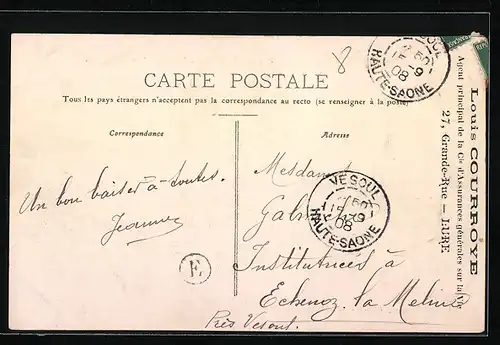 8
CARTE POSTALE
Tous les pays étrangers n'acceptent pas la correspondance au recto (se renseigner à la poste)
Correspondance
Adresse
Un bon baiser à toutes.
Jeanne
E
Mesdames
Institutrices à
Echenoz la Meline
Près Vesoul.
VESOUL
15-9
08
HAUTE-SAONE
VESOUL
15-9
08
HAUTE-SAONE
Louis COURROYE
Agent principal de la Cie d'Assurances générales sur la Vie
27, Grande-Rue — LURE